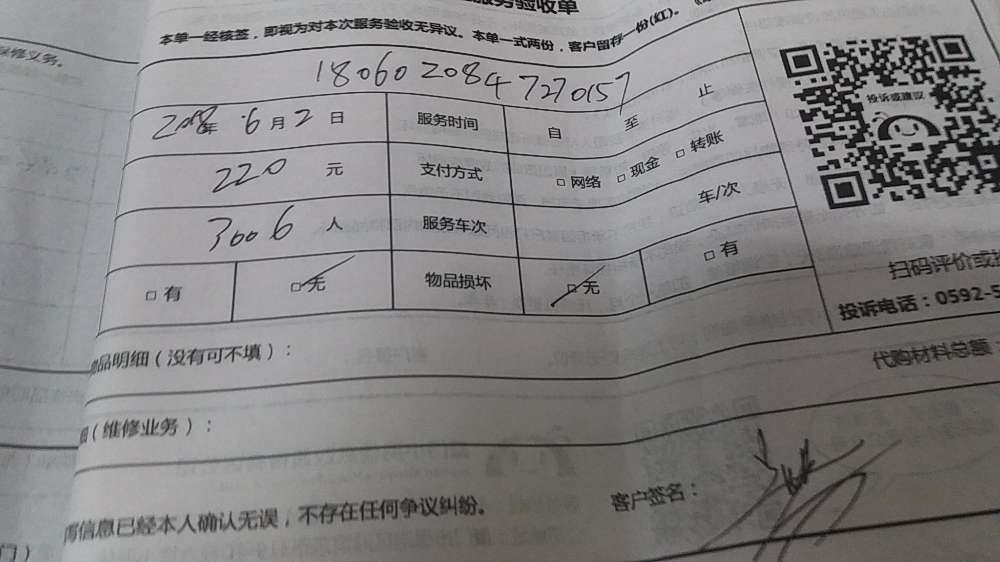 服务验收单
本单一经核签，即视为对本次服务验收无异议。本单一式两份，客户留存一份(红)。
保修义务。
1806020847270157
2018年 6月2日 服务时间 自 至 止
220 元 支付方式 □网络 □现金 □转账
3006 人 服务车次 车/次
□有 □无 物品损坏 □无 □有
投诉或建议
扫码评价或投
投诉电话：0592-5
物品明细（没有可不填）：
代购材料总额：
细（维修业务）：
客户签名：
信息已经本人确认无误，不存在任何争议纠纷。
门）